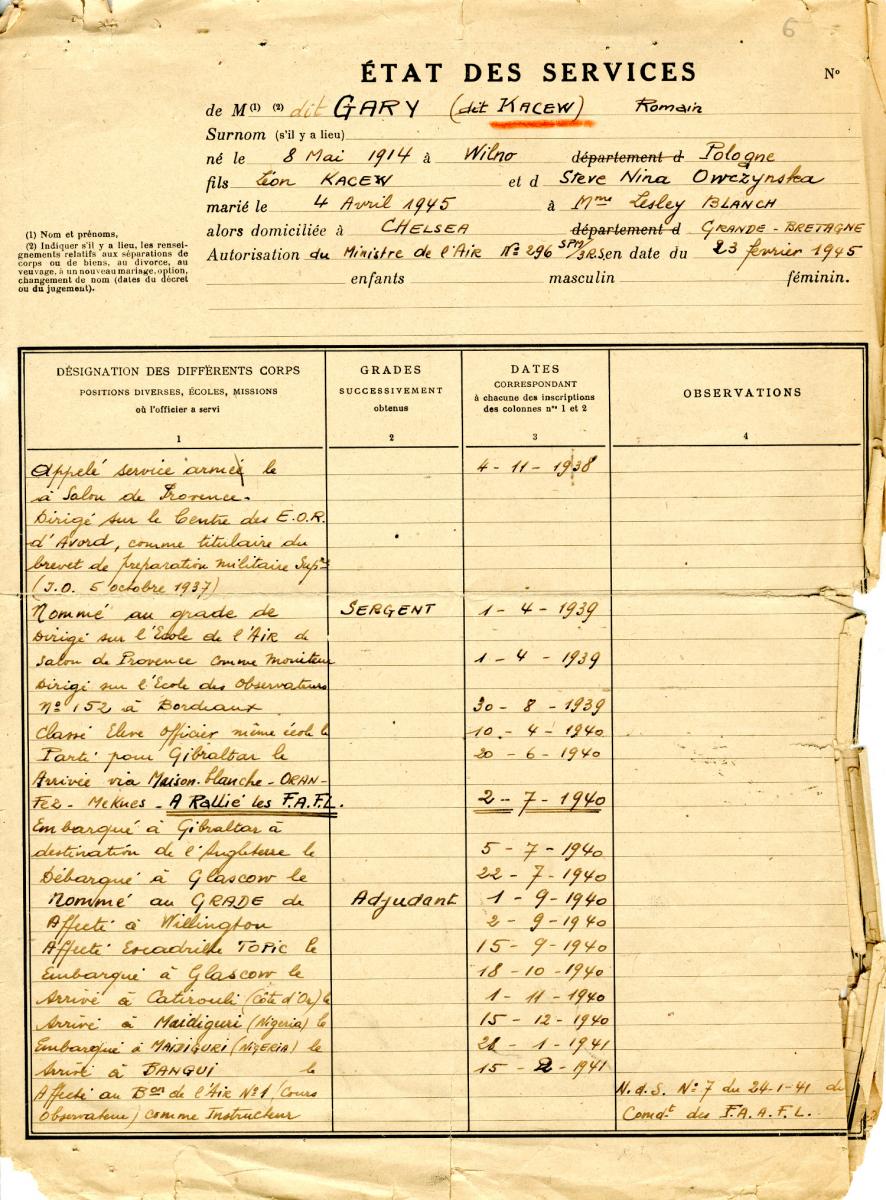 6
ÉTAT DES SERVICES
N°
de M(1) (2) dit GARY (dit KACEW) Romain
Surnom (s'il y a lieu)
né le 8 Mai 1914 à Wilno département d Pologne
fils Léon KACEW et d Steve Nina Owczynska
marié le 4 Avril 1945 à Mme Lesley BLANCH
alors domiciliée à CHELSEA département d GRANDE-BRETAGNE
Autorisation du Ministre de l'Air N° 296 SPM/3RS en date du 23 février 1945
enfants masculin féminin.
(1) Nom et prénoms.
(2) Indiquer s'il y a lieu, les rensei-
gnements relatifs aux séparations de
corps ou de biens, au divorce, au
veuvage, à un nouveau mariage, option,
changement de nom (dates du décret
ou du jugement).
DÉSIGNATION DES DIFFÉRENTS CORPS
POSITIONS DIVERSES, ÉCOLES, MISSIONS
où l'officier a servi
1
GRADES
SUCCESSIVEMENT
obtenus
2
DATES
CORRESPONDANT
à chacune des inscriptions
des colonnes nos 1 et 2
3
OBSERVATIONS
4
Appelé service armée le 4-11-1938
à Salon de Provence.
Dirigé sur le Centre des E.O.R.
d'Avord, comme titulaire du
brevet de préparation militaire Supre
(J.O. 5 octobre 1937)
Nommé au grade de SERGENT 1-4-1939
Dirigé sur l'Ecole de l'Air de
Salon de Provence comme moniteur 1-4-1939
Dirigé sur l'Ecole des Observateurs
N° 152 à Bordeaux 30-8-1939
Classé Elève officier même école le 10-4-1940
Parti pour Gibraltar le 20-6-1940
Arrivée via Maison-blanche-ORAN-
Fez-Meknes-A Rallié les F.A.F.L. 2-7-1940
Embarqué à Gibraltar à
destination de l'Angleterre le 5-7-1940
Débarqué à Glascow le 22-7-1940
Nommé au GRADE de Adjudant 1-9-1940
Affecté à Willington 2-9-1940
Affecté Escadrille TOPIC le 15-9-1940
Embarqué à Glascow le 18-10-1940
Arrivé à Catirouli (Côte d'Or) le 1-11-1940
Arrivé à Maidiguri (Nigeria) le 15-12-1940
Embarqué à MAIDIGURI (NIGERIA) le 1-1941
Arrivé à BANGUI le 15-2-1941
Affecté au Bon de l'Air N°1 (Cours N.d.S. N°7 du 24-1-41 du
Observateur) comme Instructeur Comdt des F.A.F.L.